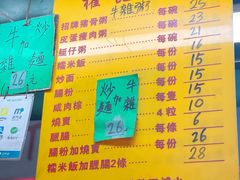 牛雜粥
招牌豬骨粥 每碗 23
皮蛋瘦肉粥 每碗 21
艇仔粥 每碗 16
糯米飯 每碗 15
炒面 每份 15
腸粉 每份 15
咸肉粽 每隻
燒賣 4粒 10
臘腸 每條 6
腸粉加燒賣 每份 26
糯米飯加臘腸2條 28
牛雜
加
腸
26元
牛雜
加
炒麵
26